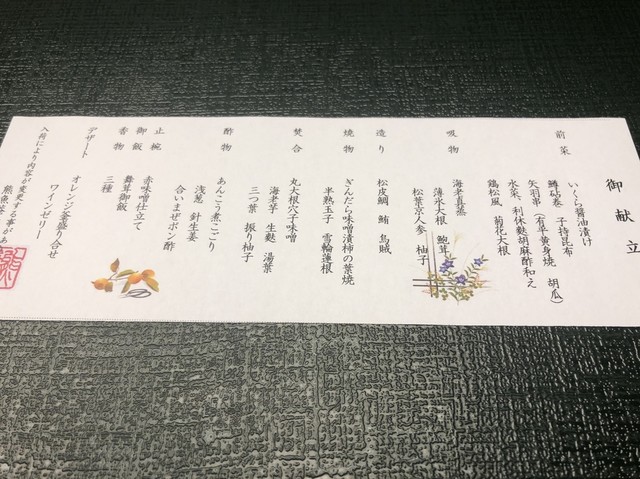 御献立
前菜
いくら醤油漬け
鱒砧巻 子持昆布
矢羽串 (有平黄身焼 胡瓜)
水菜、利休麩胡麻酢和え
鶏松風 菊花大根
吸物
海老真蒸
薄氷大根 鮑茸
松葉京人参 柚子
造り
松皮鯛 鮪 烏賊
焼物
ぎんだら味噌漬柿の葉焼
半熟玉子 雪輪蓮根
焚合
丸大根穴子味噌
海老芋 生麩 湯葉
三つ葉 振り柚子
酢物
あんこう煮こごり
浅葱 針生姜
合いまぜポン酢
止椀
赤味噌仕立て
御飯
舞茸御飯
香物
三種
デザート
オレンジ釜盛り合せ
ワインゼリー
入荷により内容が変更する事があ